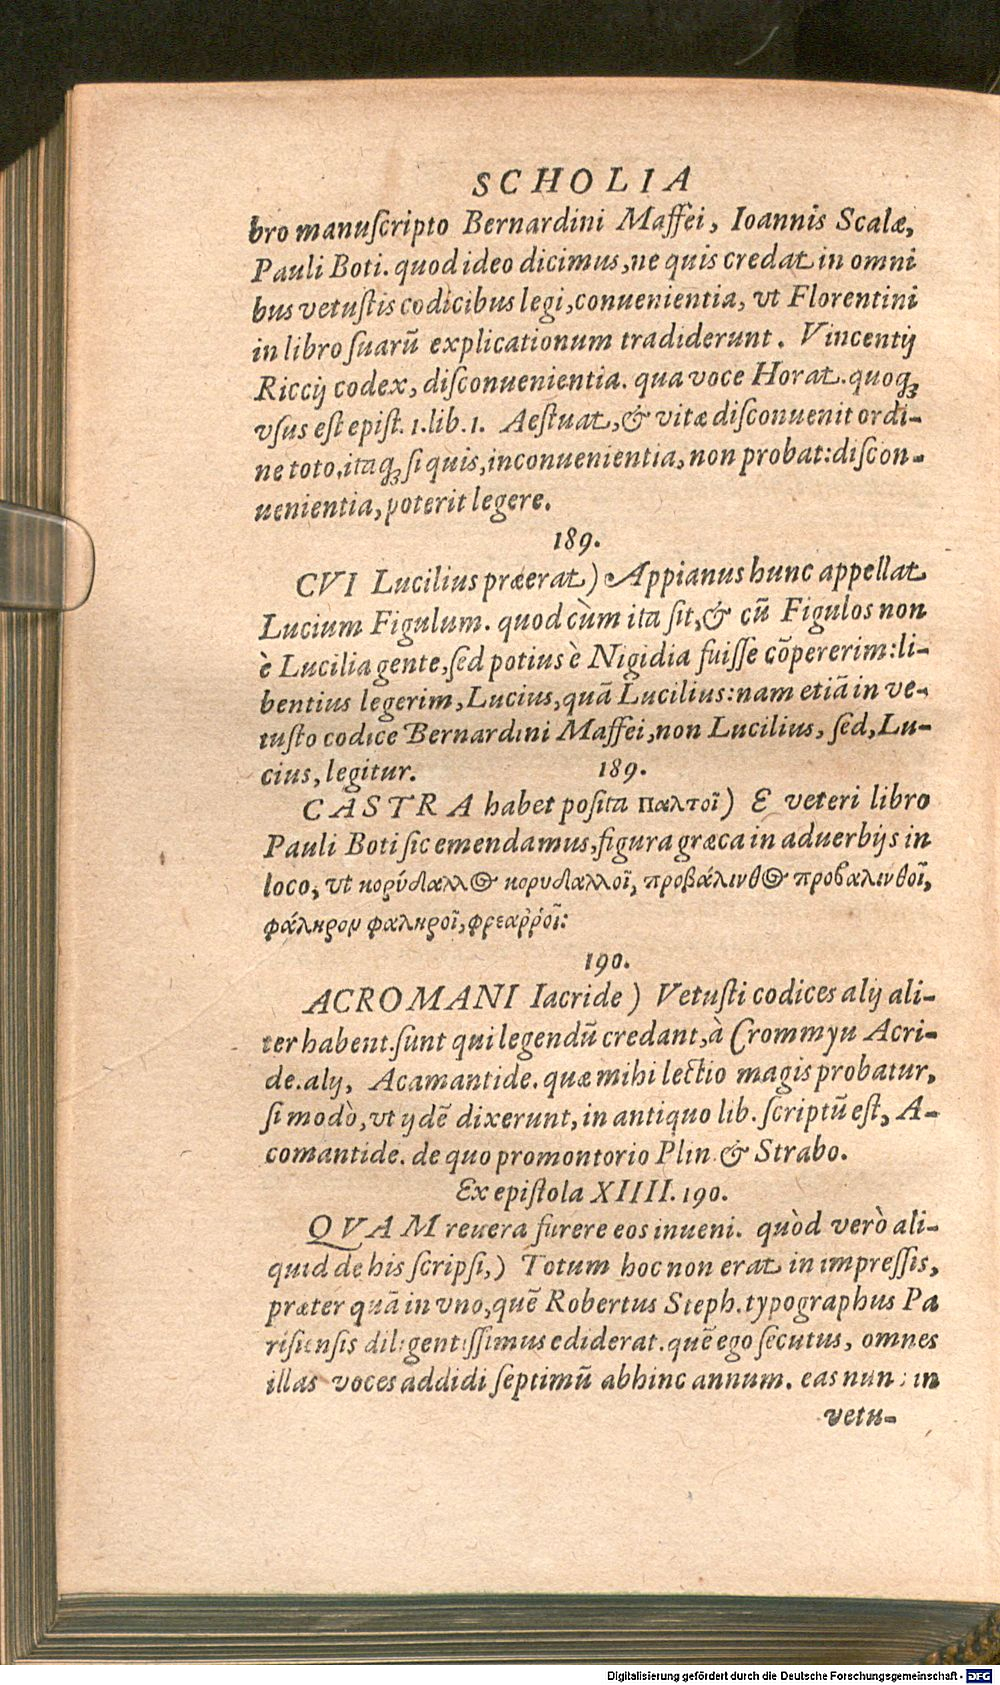 SCHOLIA
bro manuſcripto Bernardini Maffei, Ioannis Scalæ,
Pauli Boti. quod ideo dicimus, ne quis credat in omni
bus vetuſtis codicibus legi, conuenientia, vt Florentini
in libro ſuarū explicationum tradiderunt. Vincentij
Riccij codex, diſconuenientia. qua voce Horat. quoq;
vſus eſt epiſt. 1. lib. 1. Aeſtuat, & vitæ diſconuenit ordi-
ne toto, itaq; ſi quis, inconuenientia, non probat: diſcon-
uenientia, poterit legere.
189.
CVI Lucilius præerat) Appianus hunc appellat
Lucium Figulum. quod cùm ita ſit, & cū Figulos non
è Lucilia gente, ſed potius è Nigidia fuiſſe cōpererim: li-
bentius legerim, Lucius, quā Lucilius: nam etiā in ve-
tuſto codice Bernardini Maffei, non Lucilius, ſed, Lu-
cius, legitur. 189.
CASTRA habet poſita παλτοῖ) E veteri libro
Pauli Boti ſic emendamus, figura græca in aduerbijs in
loco, vt κορύδαλλος κορυδαλλοῖ, προβάλινθος προβαλινθοῖ,
φάληρον φαληροῖ, φρεαῤῥοῖ:
190.
ACROMANI Iacride) Vetuſti codices alij ali-
ter habent. ſunt qui legendū credant, à Crommyu Acri-
de. alij, Acamantide. quæ mihi lectio magis probatur,
ſi modò, vt ijdē dixerunt, in antiquo lib. ſcriptū eſt, A-
comantide. de quo promontorio Plin. & Strabo.
Ex epiſtola XIIII. 190.
QVAM reuera furere eos inueni. quòd verò ali-
quid de his ſcripſi,) Totum hoc non erat in impreſſis,
præter quā in vno, quē Robertus Steph. typographus Pa
riſienſis diligentiſſimus ediderat. quē ego ſecutus, omnes
illas voces addidi ſeptimū abhinc annum. eas nunc in
vetu-
Digitalisierung gefördert durch die Deutsche Forschungsgemeinschaft - DFG